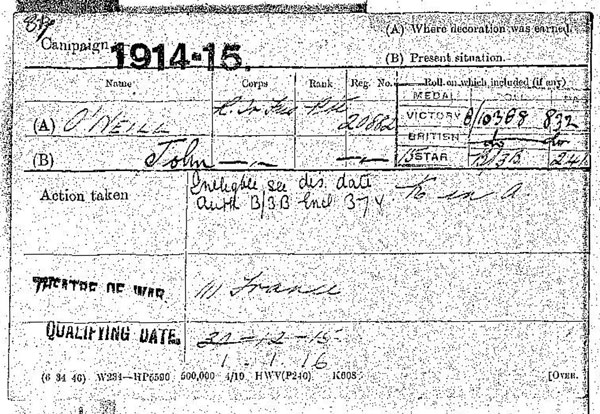 Campaign:— 1914-15.
(A) Where decoration was earned.
(B) Present situation.
Name Corps Rank Reg. No. Roll on which included (if any)
MEDAL ROLL PA
(A) O'NEILL R. In. Fus Pte 20882 VICTORY B/103B8 832
BRITISH do do
(B) John —"— —"— 15 STAR B/3B 241
Action taken Ineligible see dis. date K in A
Auth B/3B Encl 374
THEATRE OF WAR. (1) France
QUALIFYING DATE. 31-12-15
1.1.16
(6 34 46) W234—HP5590 500,000 4/19 HWV(P240) K608 [OVER.